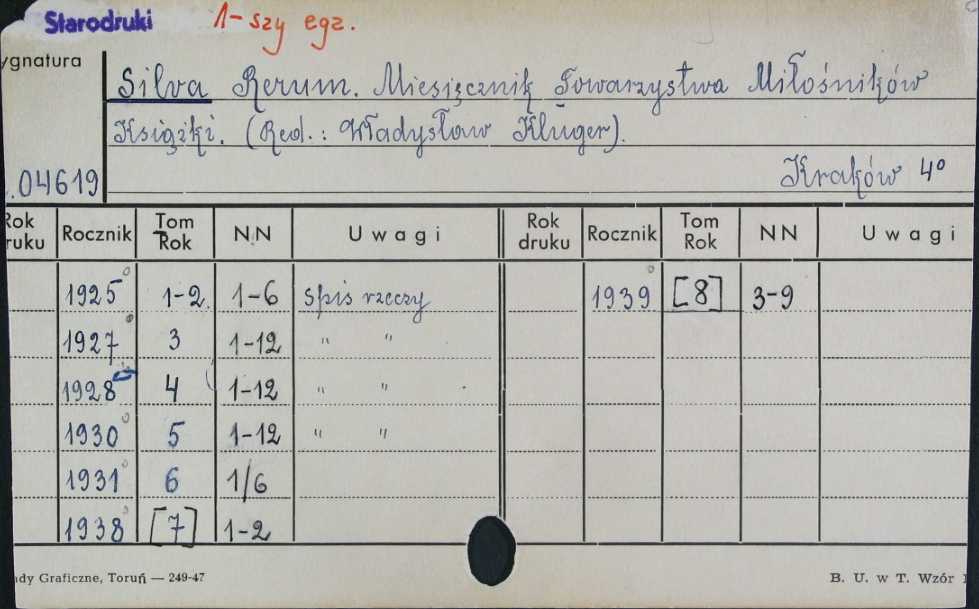 Starodruki 1-szy egz.
ygnatura
Silva Rerum. Miesięcznik Towarzystwa Miłośników
Książki. (Red.: Władysław Kluger).
.04619 Kraków 4°
Rok ruku Rocznik Tom Rok NN Uwagi Rok druku Rocznik Tom Rok NN Uwagi
1925 1-2. 1-6 Spis rzeczy 1939 [8] 3-9
1927 3 1-12 " "
1928 4 1-12 " "
1930 5 1-12 " "
1931 6 1/6
1938 [7] 1-2
ady Graficzne, Toruń — 249-47 B. U. w T. Wzór